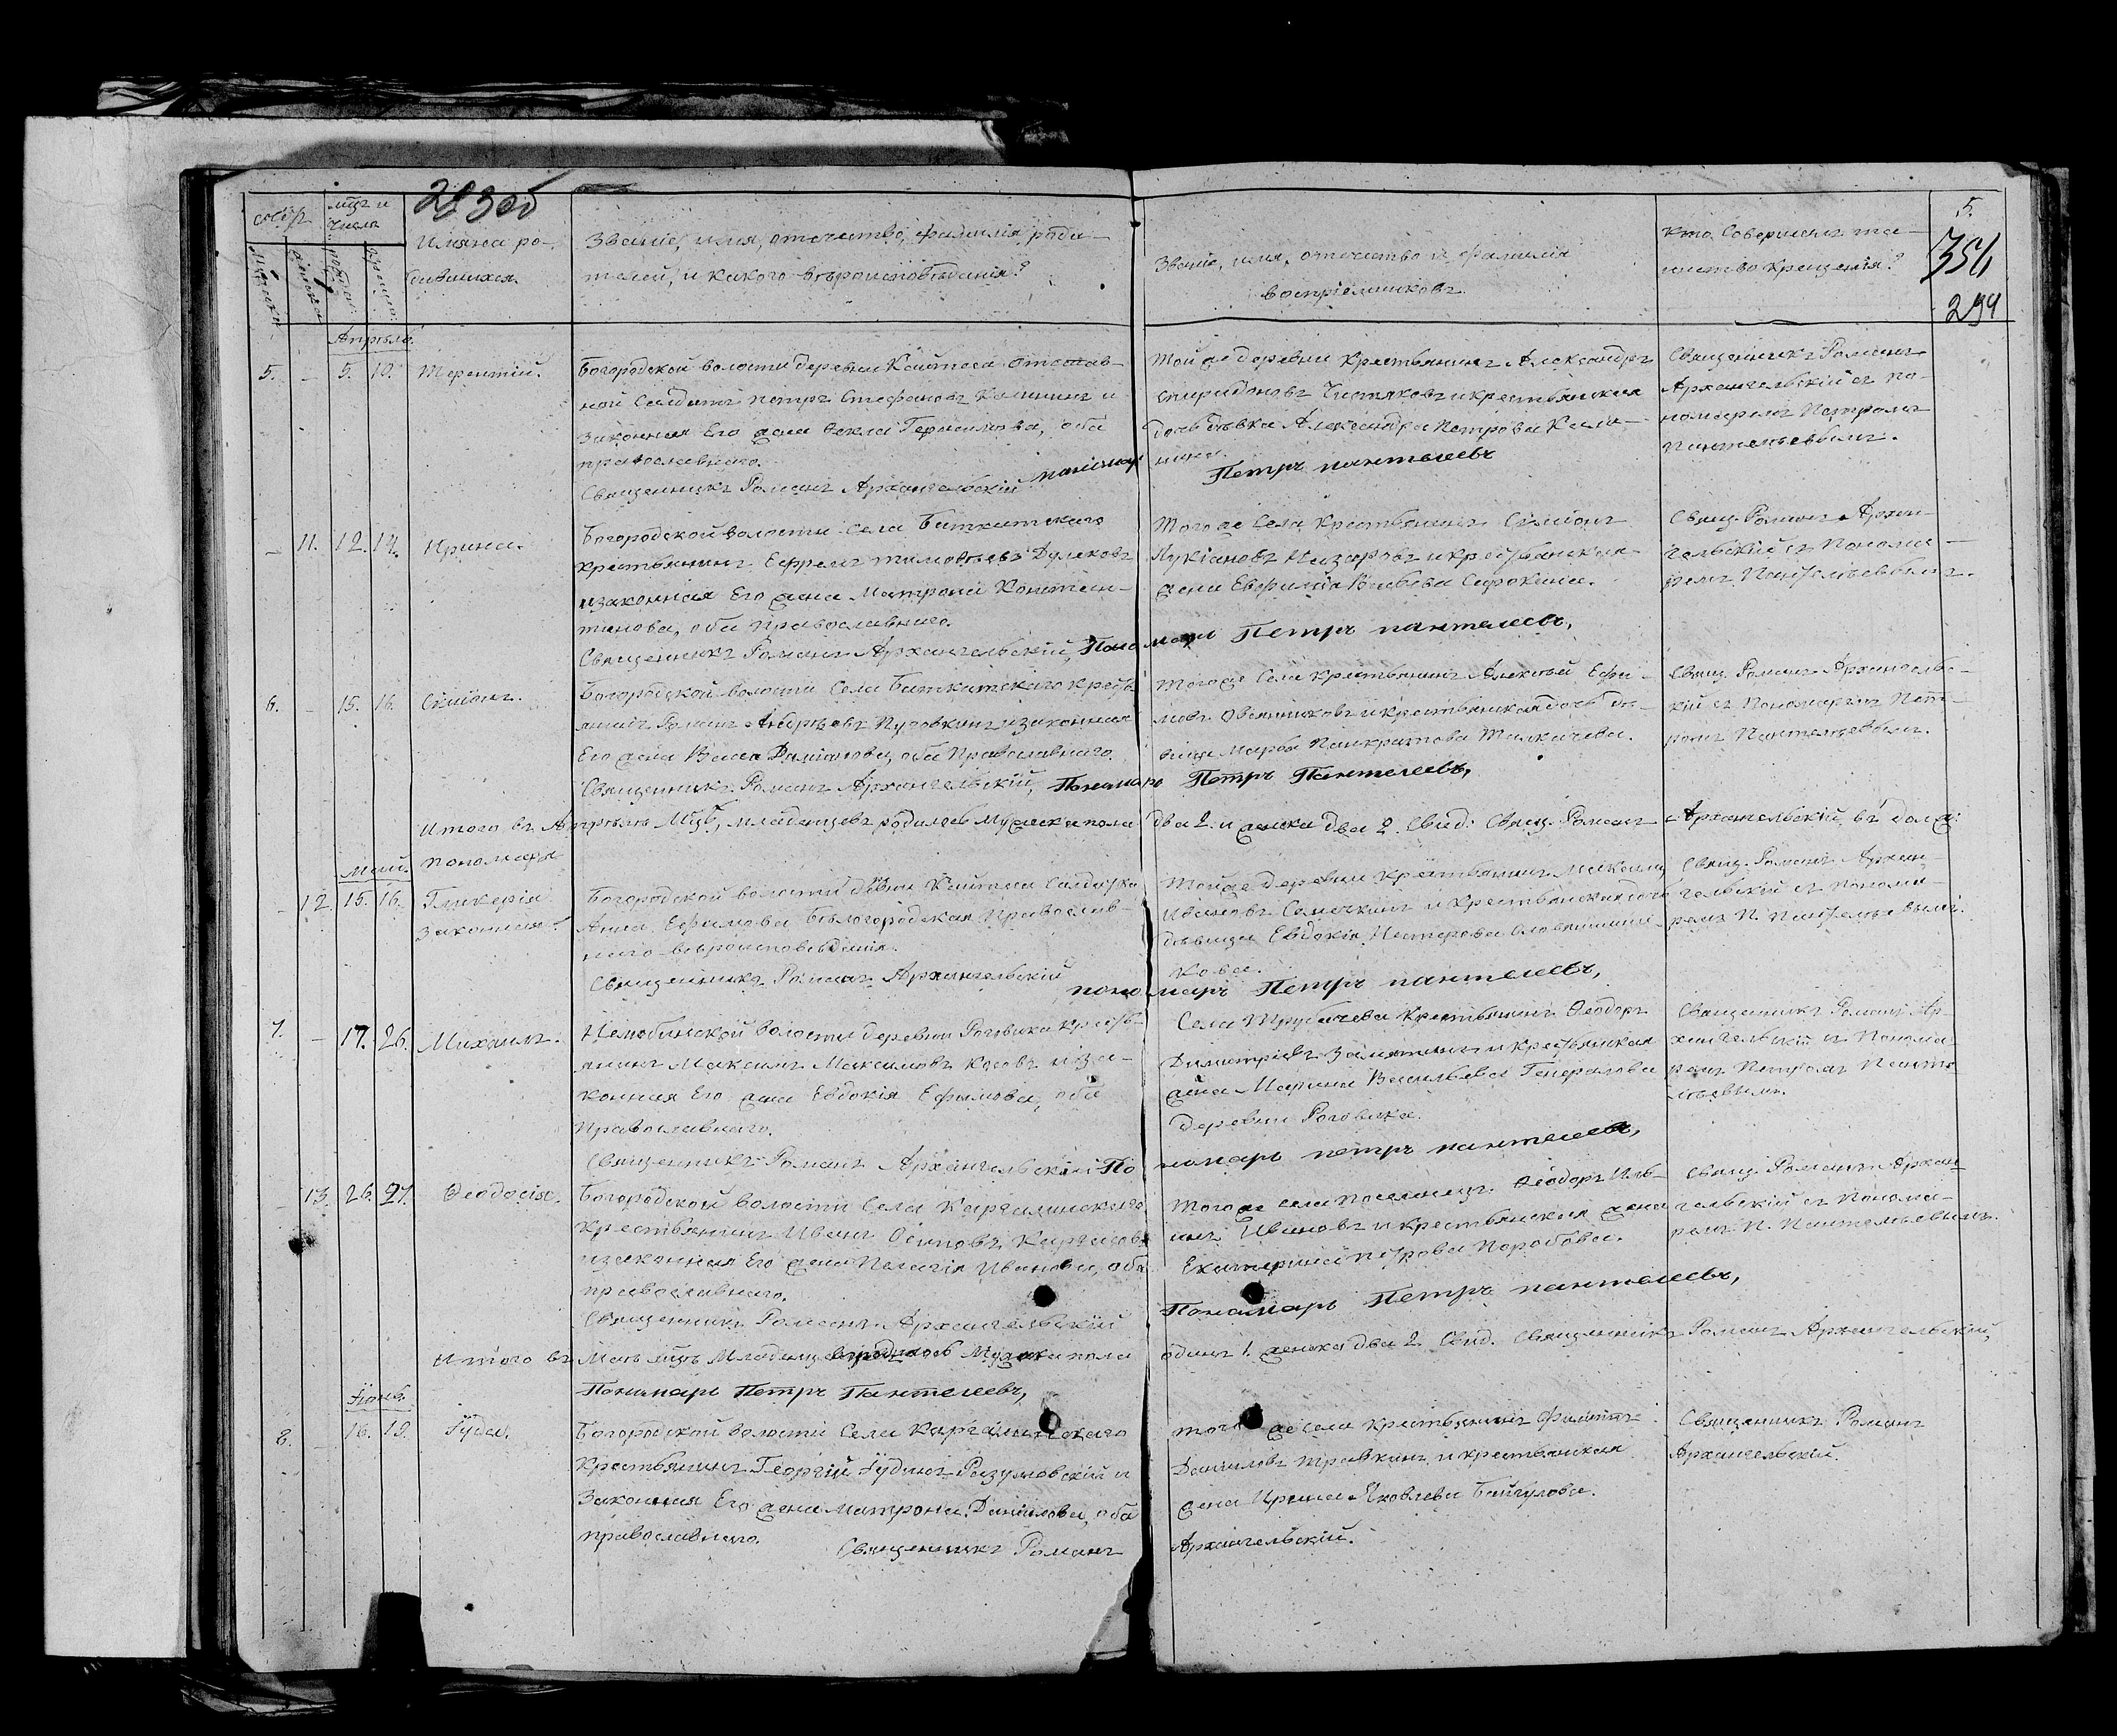 счетъ
мцъ и
числа
293об
Имяна ро-
дившихся.
Званіе, имя, отечество, фамилія роди-
телей, и какого вѣроисповѣданія?
Званіе, имя, отечество и фамилія
воспріемниковъ.
Кто совершилъ та-
инство крещенія?
5.
294
Апрѣль
5. – 5. 10. Терентій.
Богородской волости деревни Кайтеса отстав-
ной солдатъ Петръ Стефановъ Калининъ и
законная его жена Ѳекла Герасимова, оба
православнаго.
Священникъ Романъ Архангельскій
Той же деревни крестьянинъ Александръ
Спиридоновъ Чистяковъ и крестьянская
дочь дѣвка Александра Петрова Кали-
нина.
пономарь Петръ пантелеевъ
Священникъ Романъ
Архангельскій съ по-
номаремъ Петромъ
Пантелѣевымъ.
– 11. 12. 14. Ирина.
Богородской волости села Баткатскаго
крестьянинъ Ефремъ Тимоѳеевъ
и законная его жена Матрона Констан-
тинова, оба православнаго.
Священникъ Романъ Архангельскій, Пономарь Петръ пантелеевъ,
Того же села крестьянинъ Симіонъ
Лукіановъ Назаровъ и крестьянская
жена Евфимія Сафокина.
Свящ. Романъ Архан-
гельскій съ понома-
ремъ Пантелѣевымъ.
6. – 15. 16. Симіонъ.
Богородской волости села Баткатскаго кресть-
янинъ Романъ Андрѣевъ Пуговкинъ и законная
его жена Васса Даміанова, оба православнаго.
Священникъ Романъ Архангельскій, Пономарь Петръ Пантелеевъ,
Того же села крестьянинъ Алексѣй Ефи-
мовъ Овчинниковъ и крестьянская дочь дѣ-
вица Марѳа Панкратова Толкачева.
Свящ. Романъ Архангель-
кій съ пономаремъ Пет-
ромъ Пантелѣевымъ.
Итого въ Апрѣлѣ мцѣ, младенцевъ родилось мужеска пола два 2. и женска два 2. Свид: Свящ. Романъ Архангельскій, въ долж:
пономаря
Май.
– 12. 15. 16. Гликерія
законная.
Богородской волости дѣвни Кайтеса солдатка
Анна Ефимова Бѣлогородская православ-
наго вѣроисповѣданія.
Священникъ Романъ Архангельскій
пономарь Петръ пантелеевъ,
Той же деревни крестьянинъ Максимъ
Ивановъ Семечкинъ и крестьянская дочь
дѣвица Евдокія Нестерова
кова.
Свящ. Романъ Архан-
гельскій съ понома-
ремъ П. Пантелѣевымъ.
7. – 17. 26. Михаилъ.
Нелюбинской волости деревни Роговика кресть-
янинъ Максимъ Максимовъ и за-
конная его жена Евдокія Ефимова, оба
православнаго.
Священникъ Романъ Архангельскій Пономарь петръ пантелеевъ,
Села Трубачева крестьянинъ Ѳеодоръ
Димитріевъ Замятинъ и крестьянская
жена Марина Васильева Генералова
деревни Роговика.
Священникъ Романъ Ар-
хангельскій съ понома-
ремъ Петромъ Панте-
лѣевымъ.
– 13. 26. 27. Ѳеодосія.
Богородской волости села Каргалинскаго
крестьянинъ Иванъ Осиповъ
и законная его жена Пелагія Иванова, оба
православнаго.
Священникъ Романъ Архангельскій
Того же села поселенецъ Ѳеодоръ Иль-
инъ Ивановъ и крестьянская жена
Екатерина Петрова Коробова.
Пономарь Петръ пантелеевъ,
Свящ. Романъ Архан-
гельскій съ понома-
ремъ П. Пантелѣевымъ.
Итого въ Маѣ мцѣ младенцевъ родилось мужеска пола одинъ 1. женска два 2. Свид. Священникъ Романъ Архангельскій,
Пономарь Петръ Пантелеевъ,
Іюнь.
8. – 16. 19. Іуда.
Богородской волости села Каргалинскаго
крестьянинъ Георгій Іудинъ Разумовскій и
законная его жена Матрона Данилова, оба
православнаго.
Священникъ Романъ Архангельскій.
Того же села крестьянинъ Филиппъ
Даниловъ Травкинъ и крестьянская
жена Ирина Яковлева Байгулова.
Священникъ Романъ
Архангельскій.